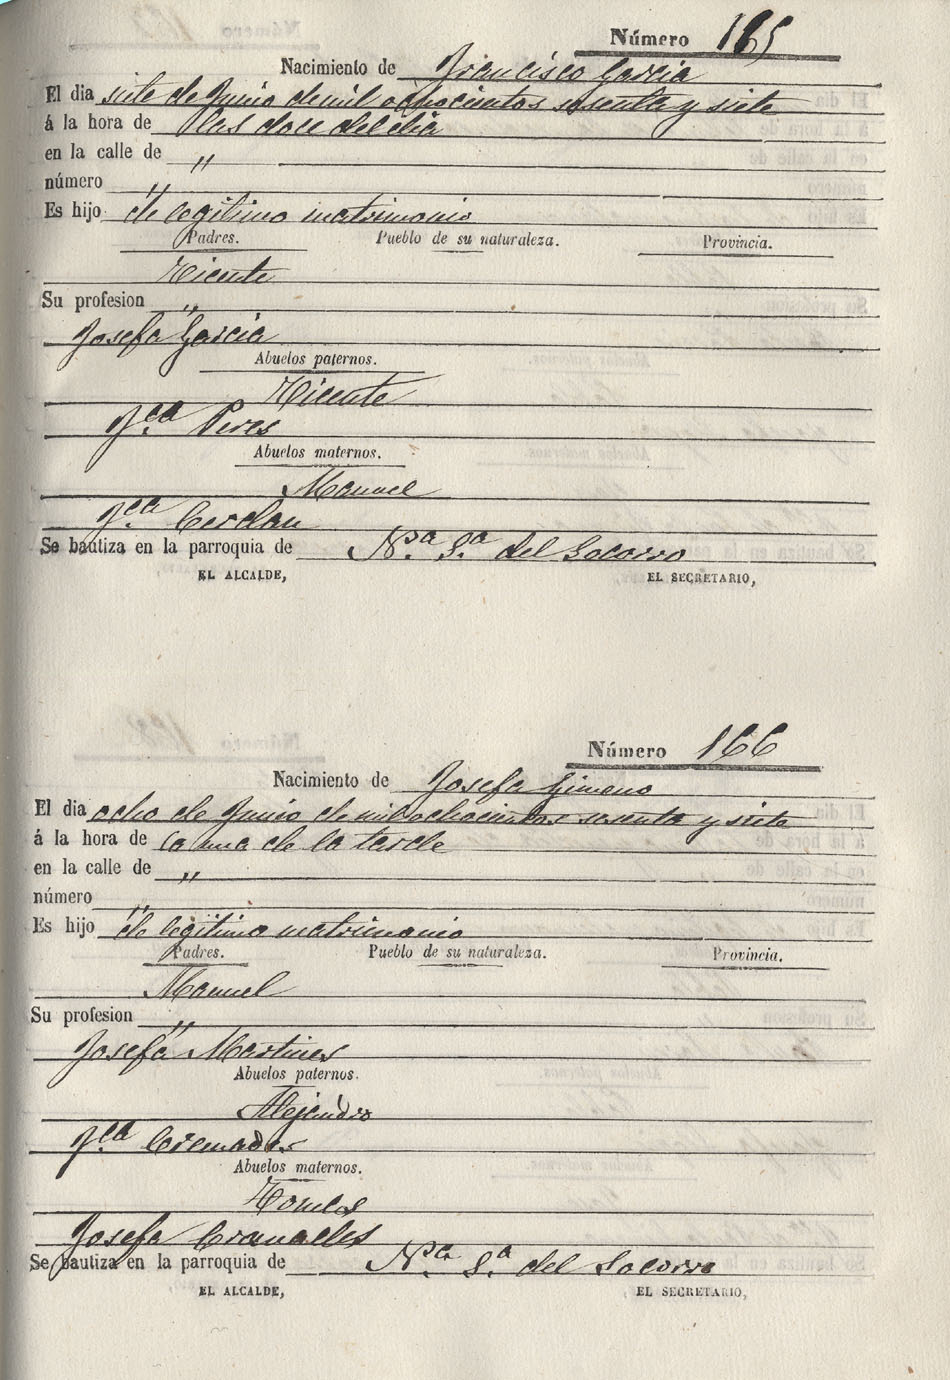 Número 165
Nacimiento de Francisco Garcia
El dia siete de Junio de mil ochocientos sesenta y siete
á la hora de las doce del dia
en la calle de "
número "
Es hijo de legitimo matrimonio
Padres. Pueblo de su naturaleza. Provincia.
Vicente
Su profesion "
Josefa Garcia
Abuelos paternos.
Vicente
Fca Peres
Abuelos maternos.
Manuel
Fca Cerdan
Se bautiza en la parroquia de Nsa Sa del Socorro
EL ALCALDE, EL SECRETARIO,
Número 166
Nacimiento de Josefa Gimeno
El dia ocho de Junio de mil ochocientos sesenta y siete
á la hora de la una de la tarde
en la calle de "
número "
Es hijo de legitimo matrimonio
Padres. Pueblo de su naturaleza. Provincia.
Manuel
Su profesion "
Josefa Martines
Abuelos paternos.
Alejandro
Fca Cremades
Abuelos maternos.
Tomas
Josefa
Se bautiza en la parroquia de Nsa Sa del Socorro
EL ALCALDE, EL SECRETARIO,